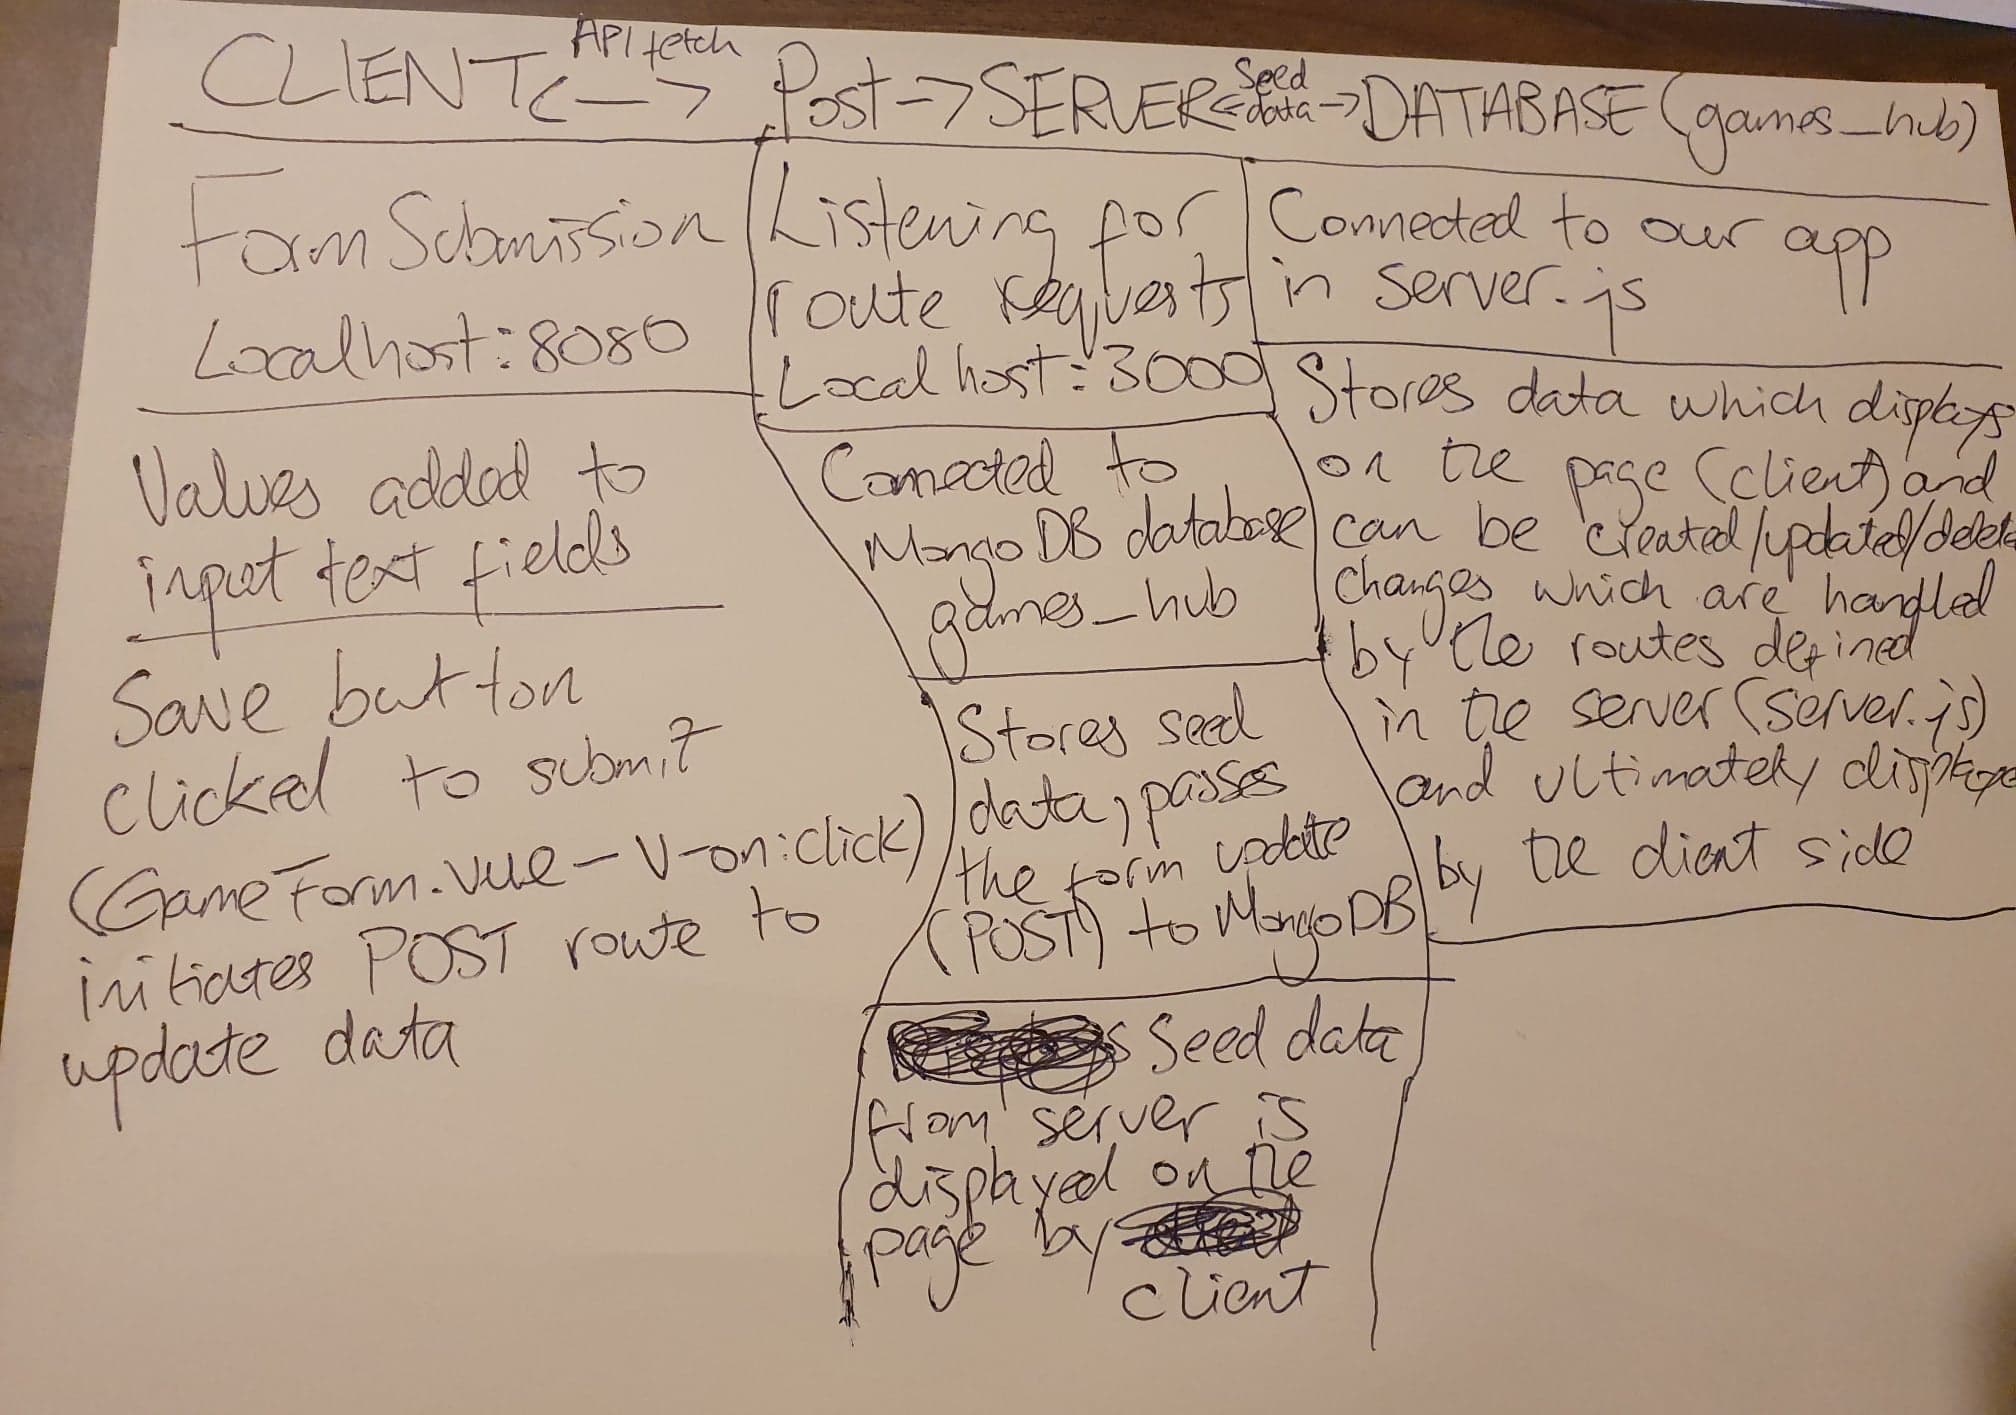 CLIENT <—> API fetch Post -> SERVER <- Seed data -> DATABASE (games_hub)
Form Submission
Localhost:8080
Values added to
input text fields
Save button
clicked to submit
(GameForm.vue - v-on:click)
initiates POST route to
update data
Listening for
route requests
Localhost:3000
Connected to
MongoDB database
games_hub
Stores seed
data, passes
the form update
(POST) to MongoDB
Seed data
from server is
displayed on the
page by
client
Connected to our app
in server.js
Stores data which displays
on the page (client) and
can be created/updated/delete
changes which are handled
by the routes defined
in the server (server.js)
and ultimately
by the client side